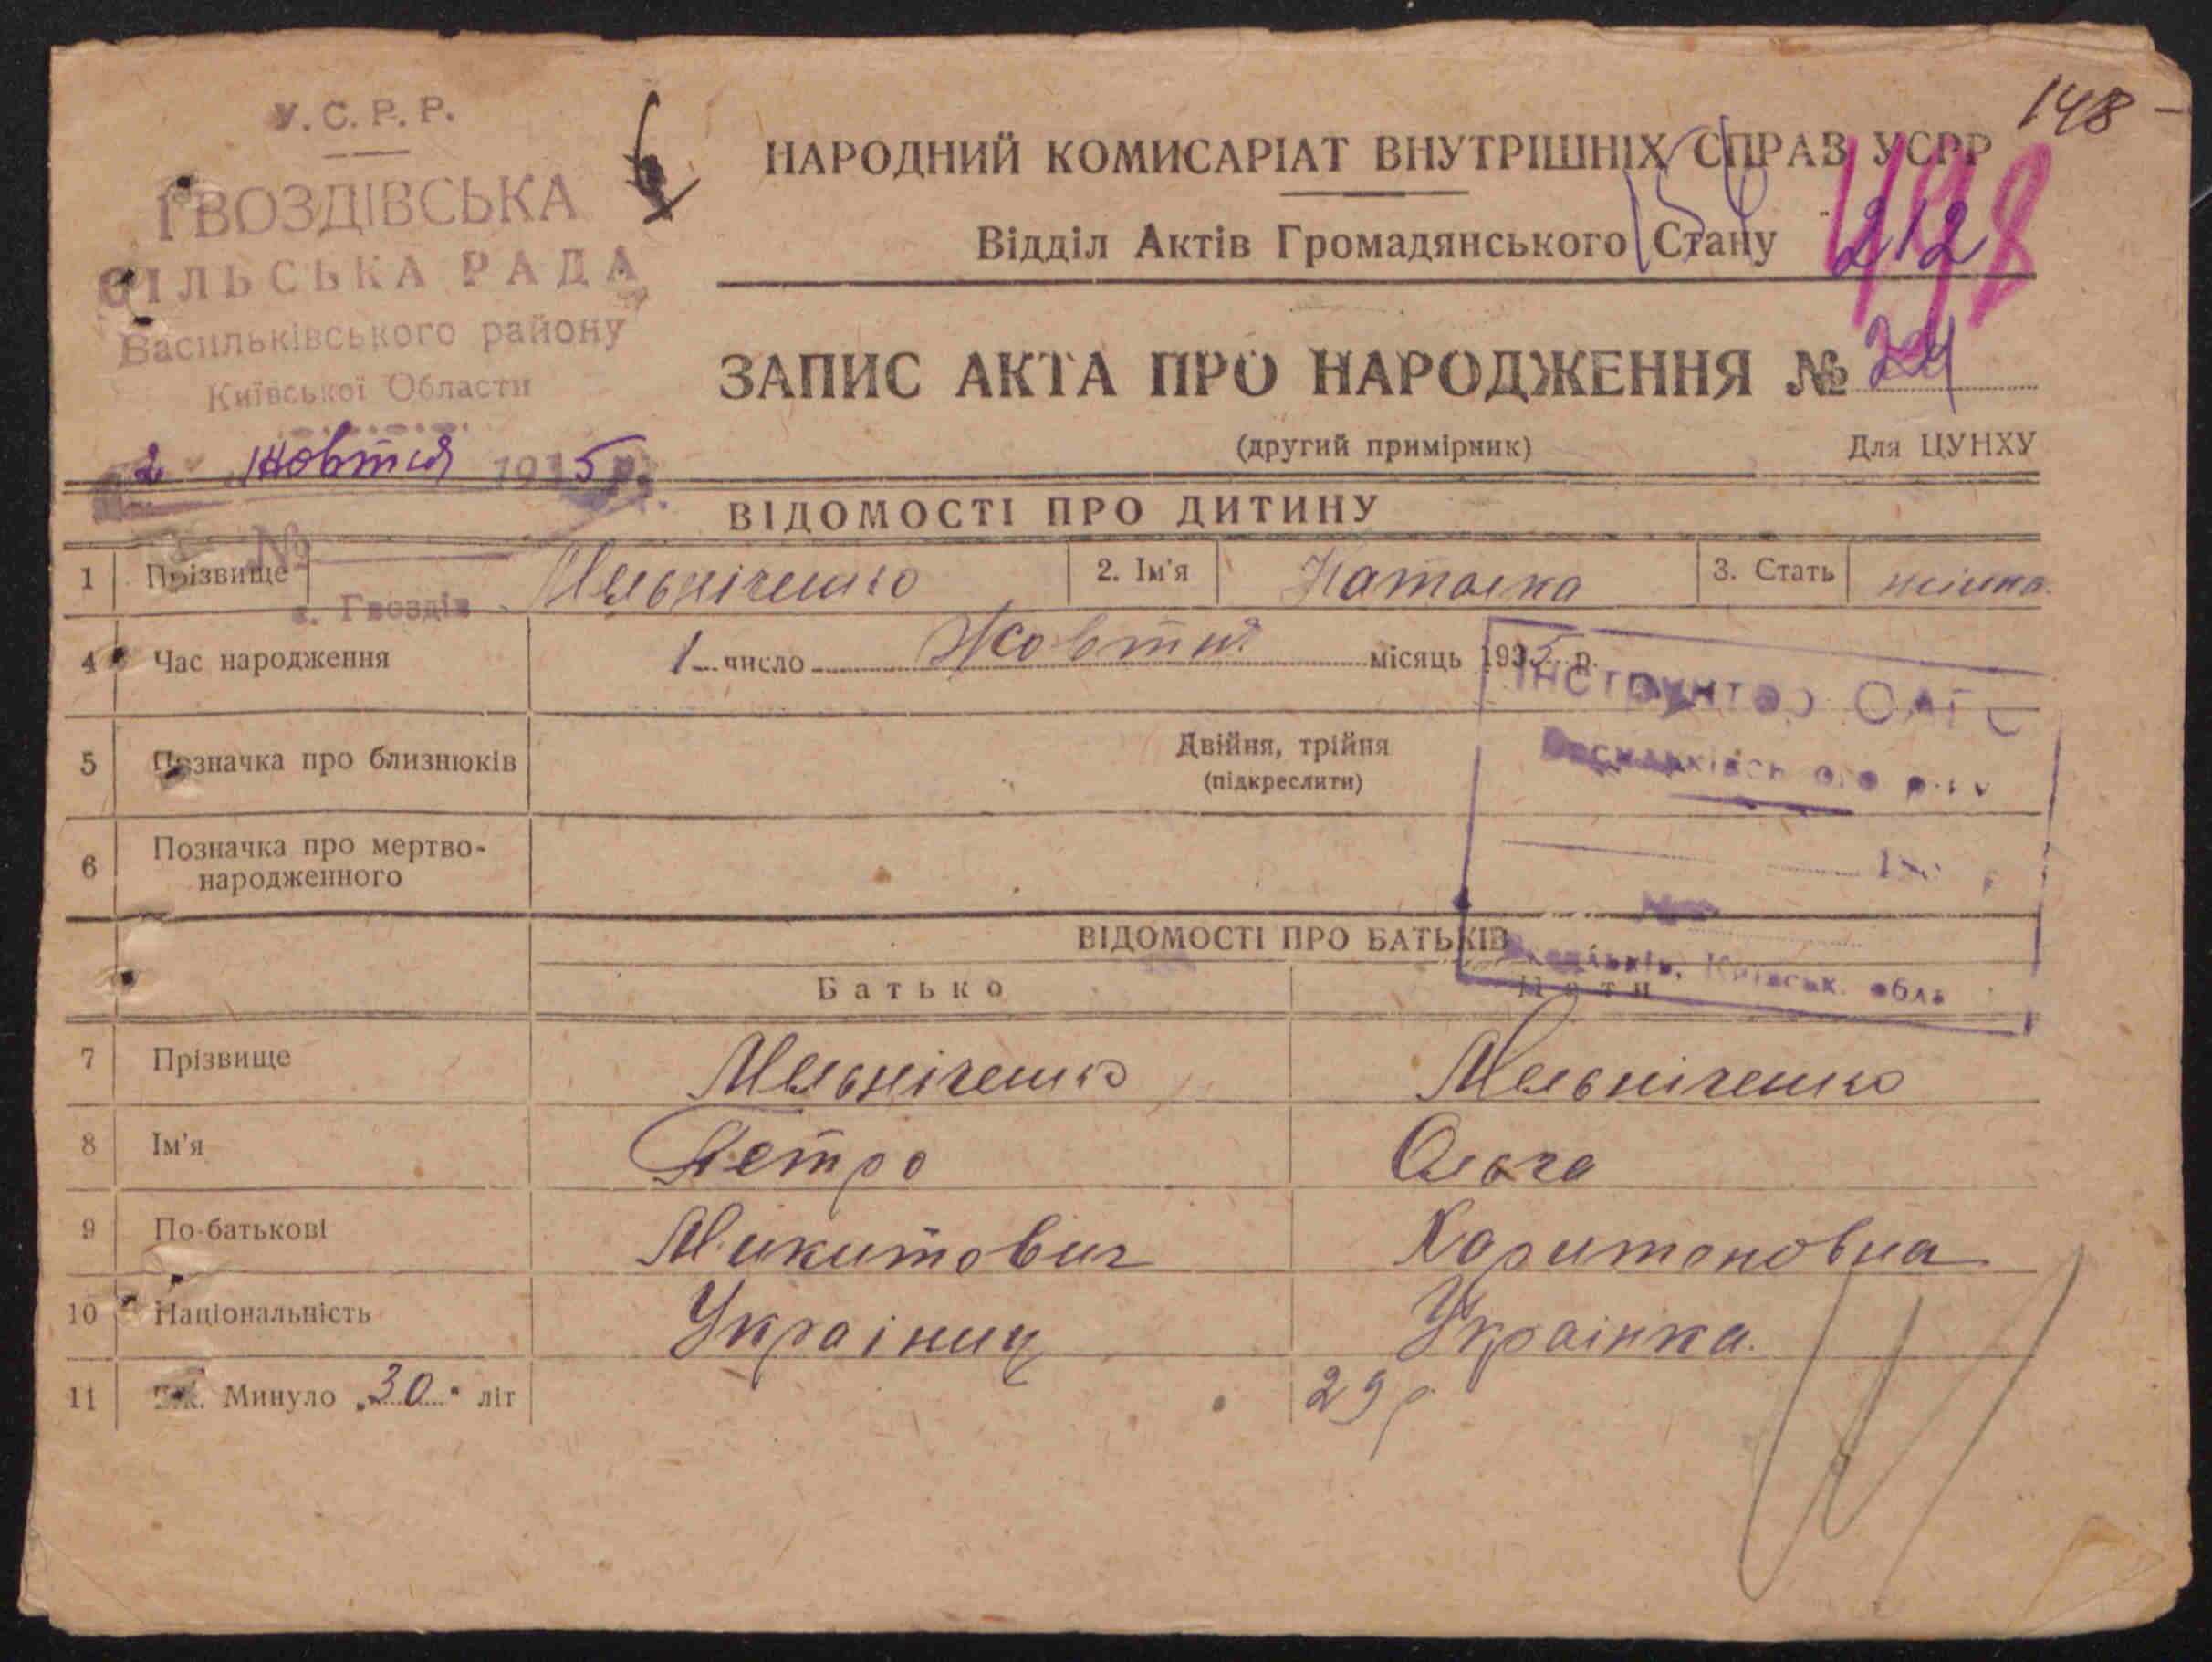 148
У.С.Р.Р.
ГВОЗДІВСЬКА
СІЛЬСЬКА РАДА
Васильківського району
Київської Области
2 Жовтня 1935 р.
№
с. Гвоздів
НАРОДНИЙ КОМИСАРІАТ ВНУТРІШНІХ СПРАВ УСРР
Відділ Актів Громадянського Стану
154
212
498
ЗАПИС АКТА ПРО НАРОДЖЕННЯ № 24
(другий примірник) Для ЦУНХУ
ВІДОМОСТІ ПРО ДИТИНУ
1 Прізвище Мельніченко 2. Ім'я Наталка 3. Стать жіноча.
4 Час народження 1 число Жовтня місяць 1935 р.
Інструктор ОАГС
5 Позначка про близнюків Двійня, трійня
(підкреслити)
Васильківського р-ну
6 Позначка про мертво-
народженного
ВІДОМОСТІ ПРО БАТЬКІВ
Васильків, Київськ. обл.
Батько Мати
7 Прізвище Мельніченко Мельніченко
8 Ім'я Петро Ольга
9 По-батькові Микитович Харитоновна
10 Національність Украіниц Украінка.
11 Вік. Минуло „30“ літ 29р